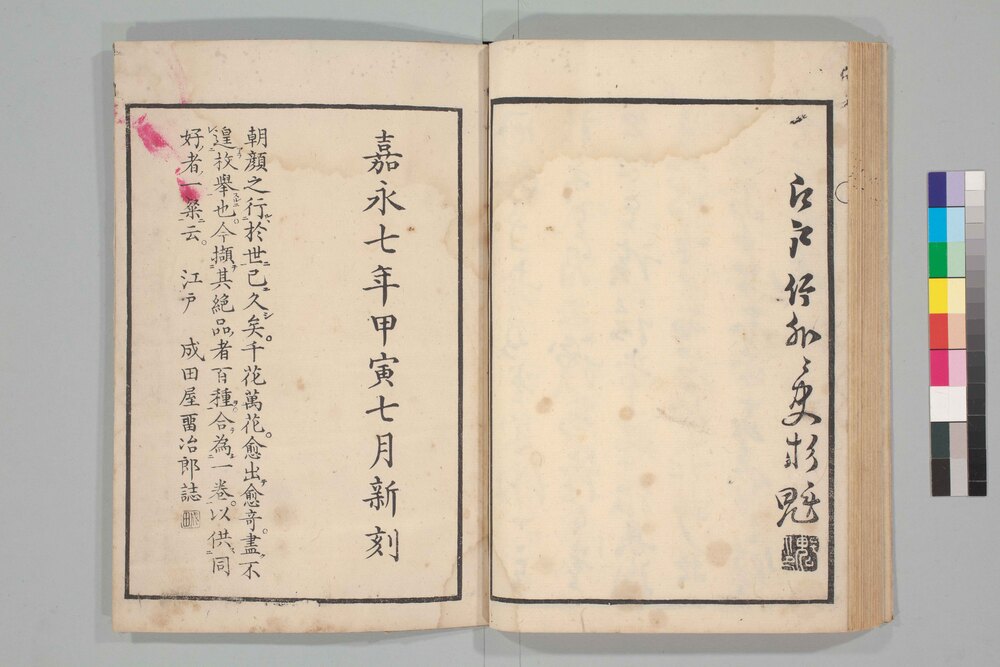 江戸 杉魁
嘉永七年甲寅七月新刻
朝顔之行於世已久矣。千花萬花。愈出愈奇。盡不
遑枚舉也。今擷其絶品者百種。合為一卷。以供同
好者一粲云。 江戸 成田屋畱治郎誌